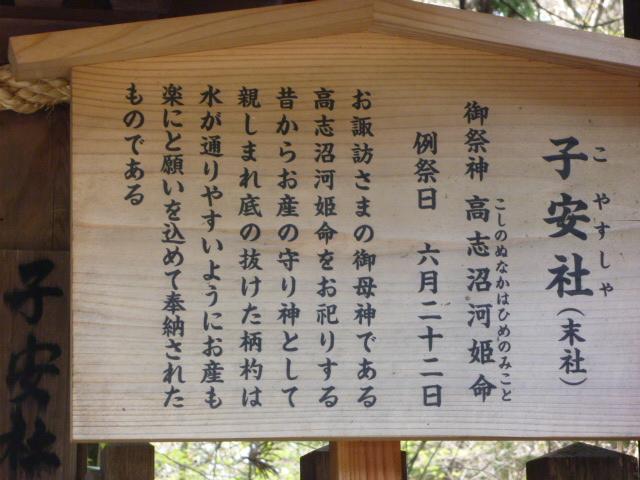 子安社(末社)
こやすしゃ
御祭神 高志沼河姫命
こしのぬなかはひめのみこと
例祭日 六月二十二日
お諏訪さまの御母神である
高志沼河姫命をお祀りする
昔からお産の守り神として
親しまれ底の抜けた柄杓は
水が通りやすいようにお産も
楽にと願いを込めて奉納された
ものである
子安社